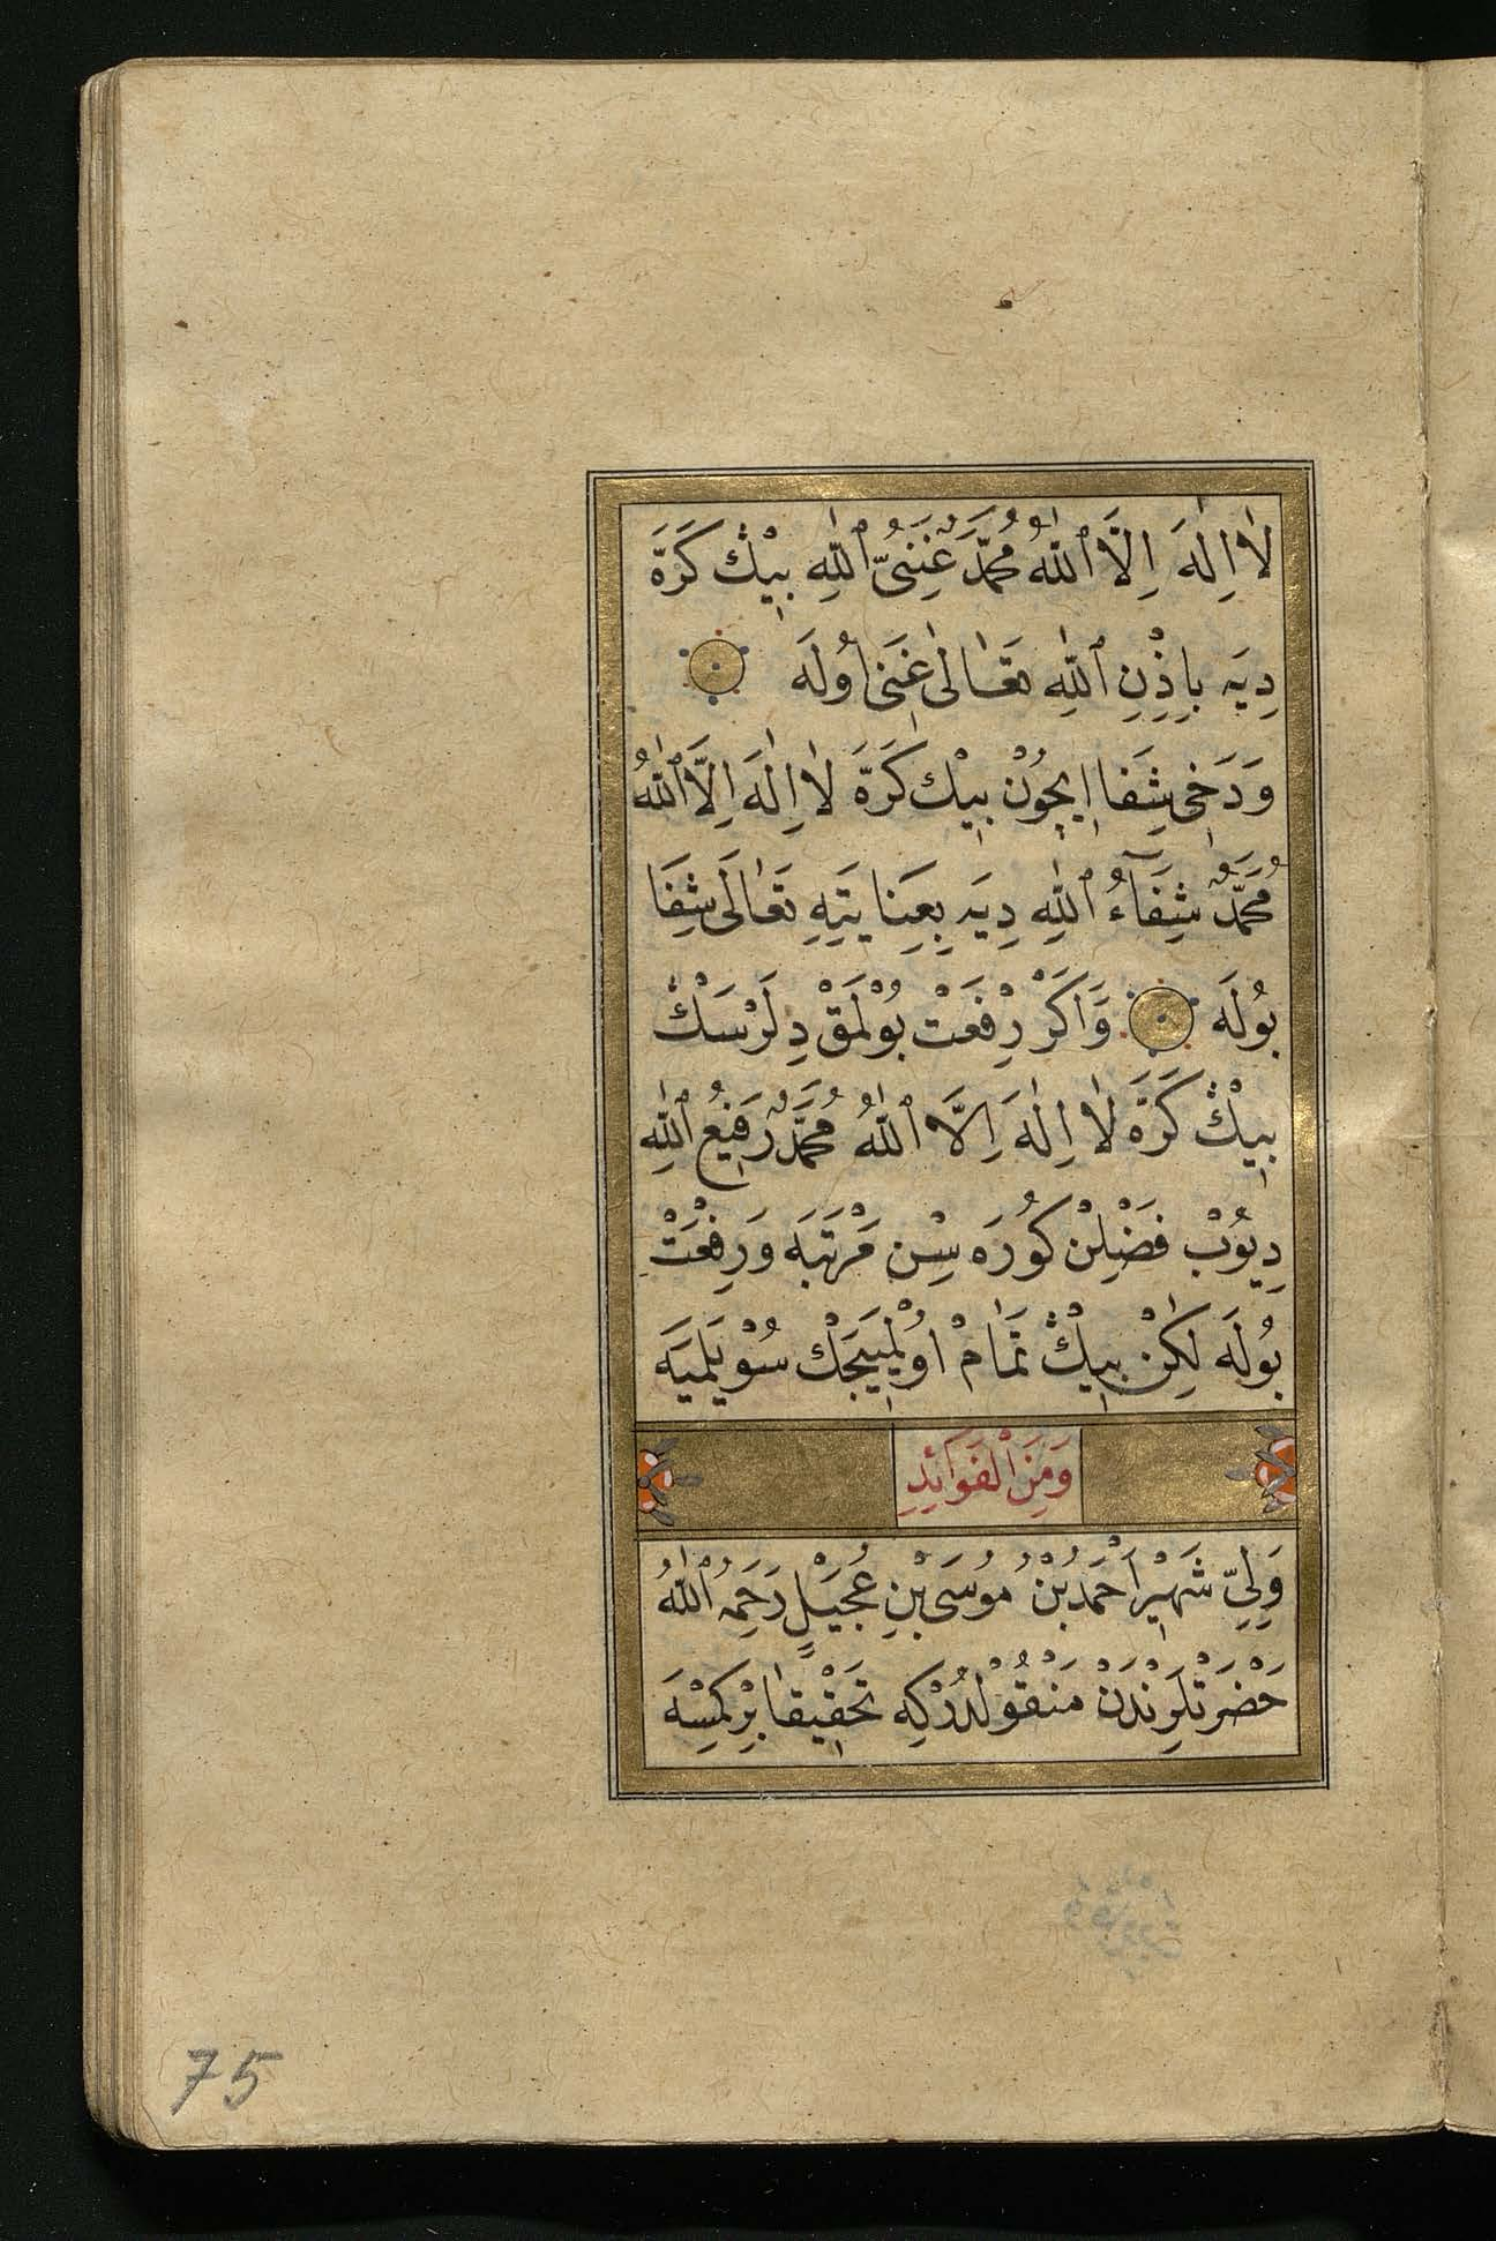 لَا اِلٰهَ اِلَّا ٱللّٰهُ مُحَمَّدٌ غَنِيُّ ٱللّٰهِ بِيْڭ كَرَّهْ
دِيَه بِاِذْنِ ٱللّٰهِ تَعَالٰى غَنِى اُولَه
وَدَخِى شِفَا اِيچُونْ بِيْڭ كَرَّهَ لَا اِلٰهَ اِلَّا ٱللّٰهُ
مُحَمَّدٌ شِفَآءُ ٱللّٰهِ دِيَه بِعِنَايَتِهِ تَعَالَى شِفَا
بُولَه وَاَكَرْ رِفْعَتْ بُوْلْمَقْ دِلَرْسَڭ
بِيْڭ كَرَّهَ لَا اِلٰهَ اِلَّا ٱللّٰهُ مُحَمَّدٌ رَفِيعُ ٱللّٰهِ
دِيُوبْ فَضْلِنْ كُورَه سِنْ مَرْتَبَه وَرِفْعَتْ
بُولَه لٰكِنْ بِيْڭ تَمَامْ اُولْمَيِيجَكْ سُوْيْلَمِيَه
وَمِنَ الْفَوَائِدِ
وَلِيِّ شَهِيْر اَحْمَدُ بْنُ مُوسَى بْنِ عُجَيْلٍ رَحِمَهُ ٱللّٰهُ
حَضْرَتْلَرِنْدَنْ مَنْقُوْلْدُرْكِه تَحْقِيْقَا بِرْ كِمْسَه
75